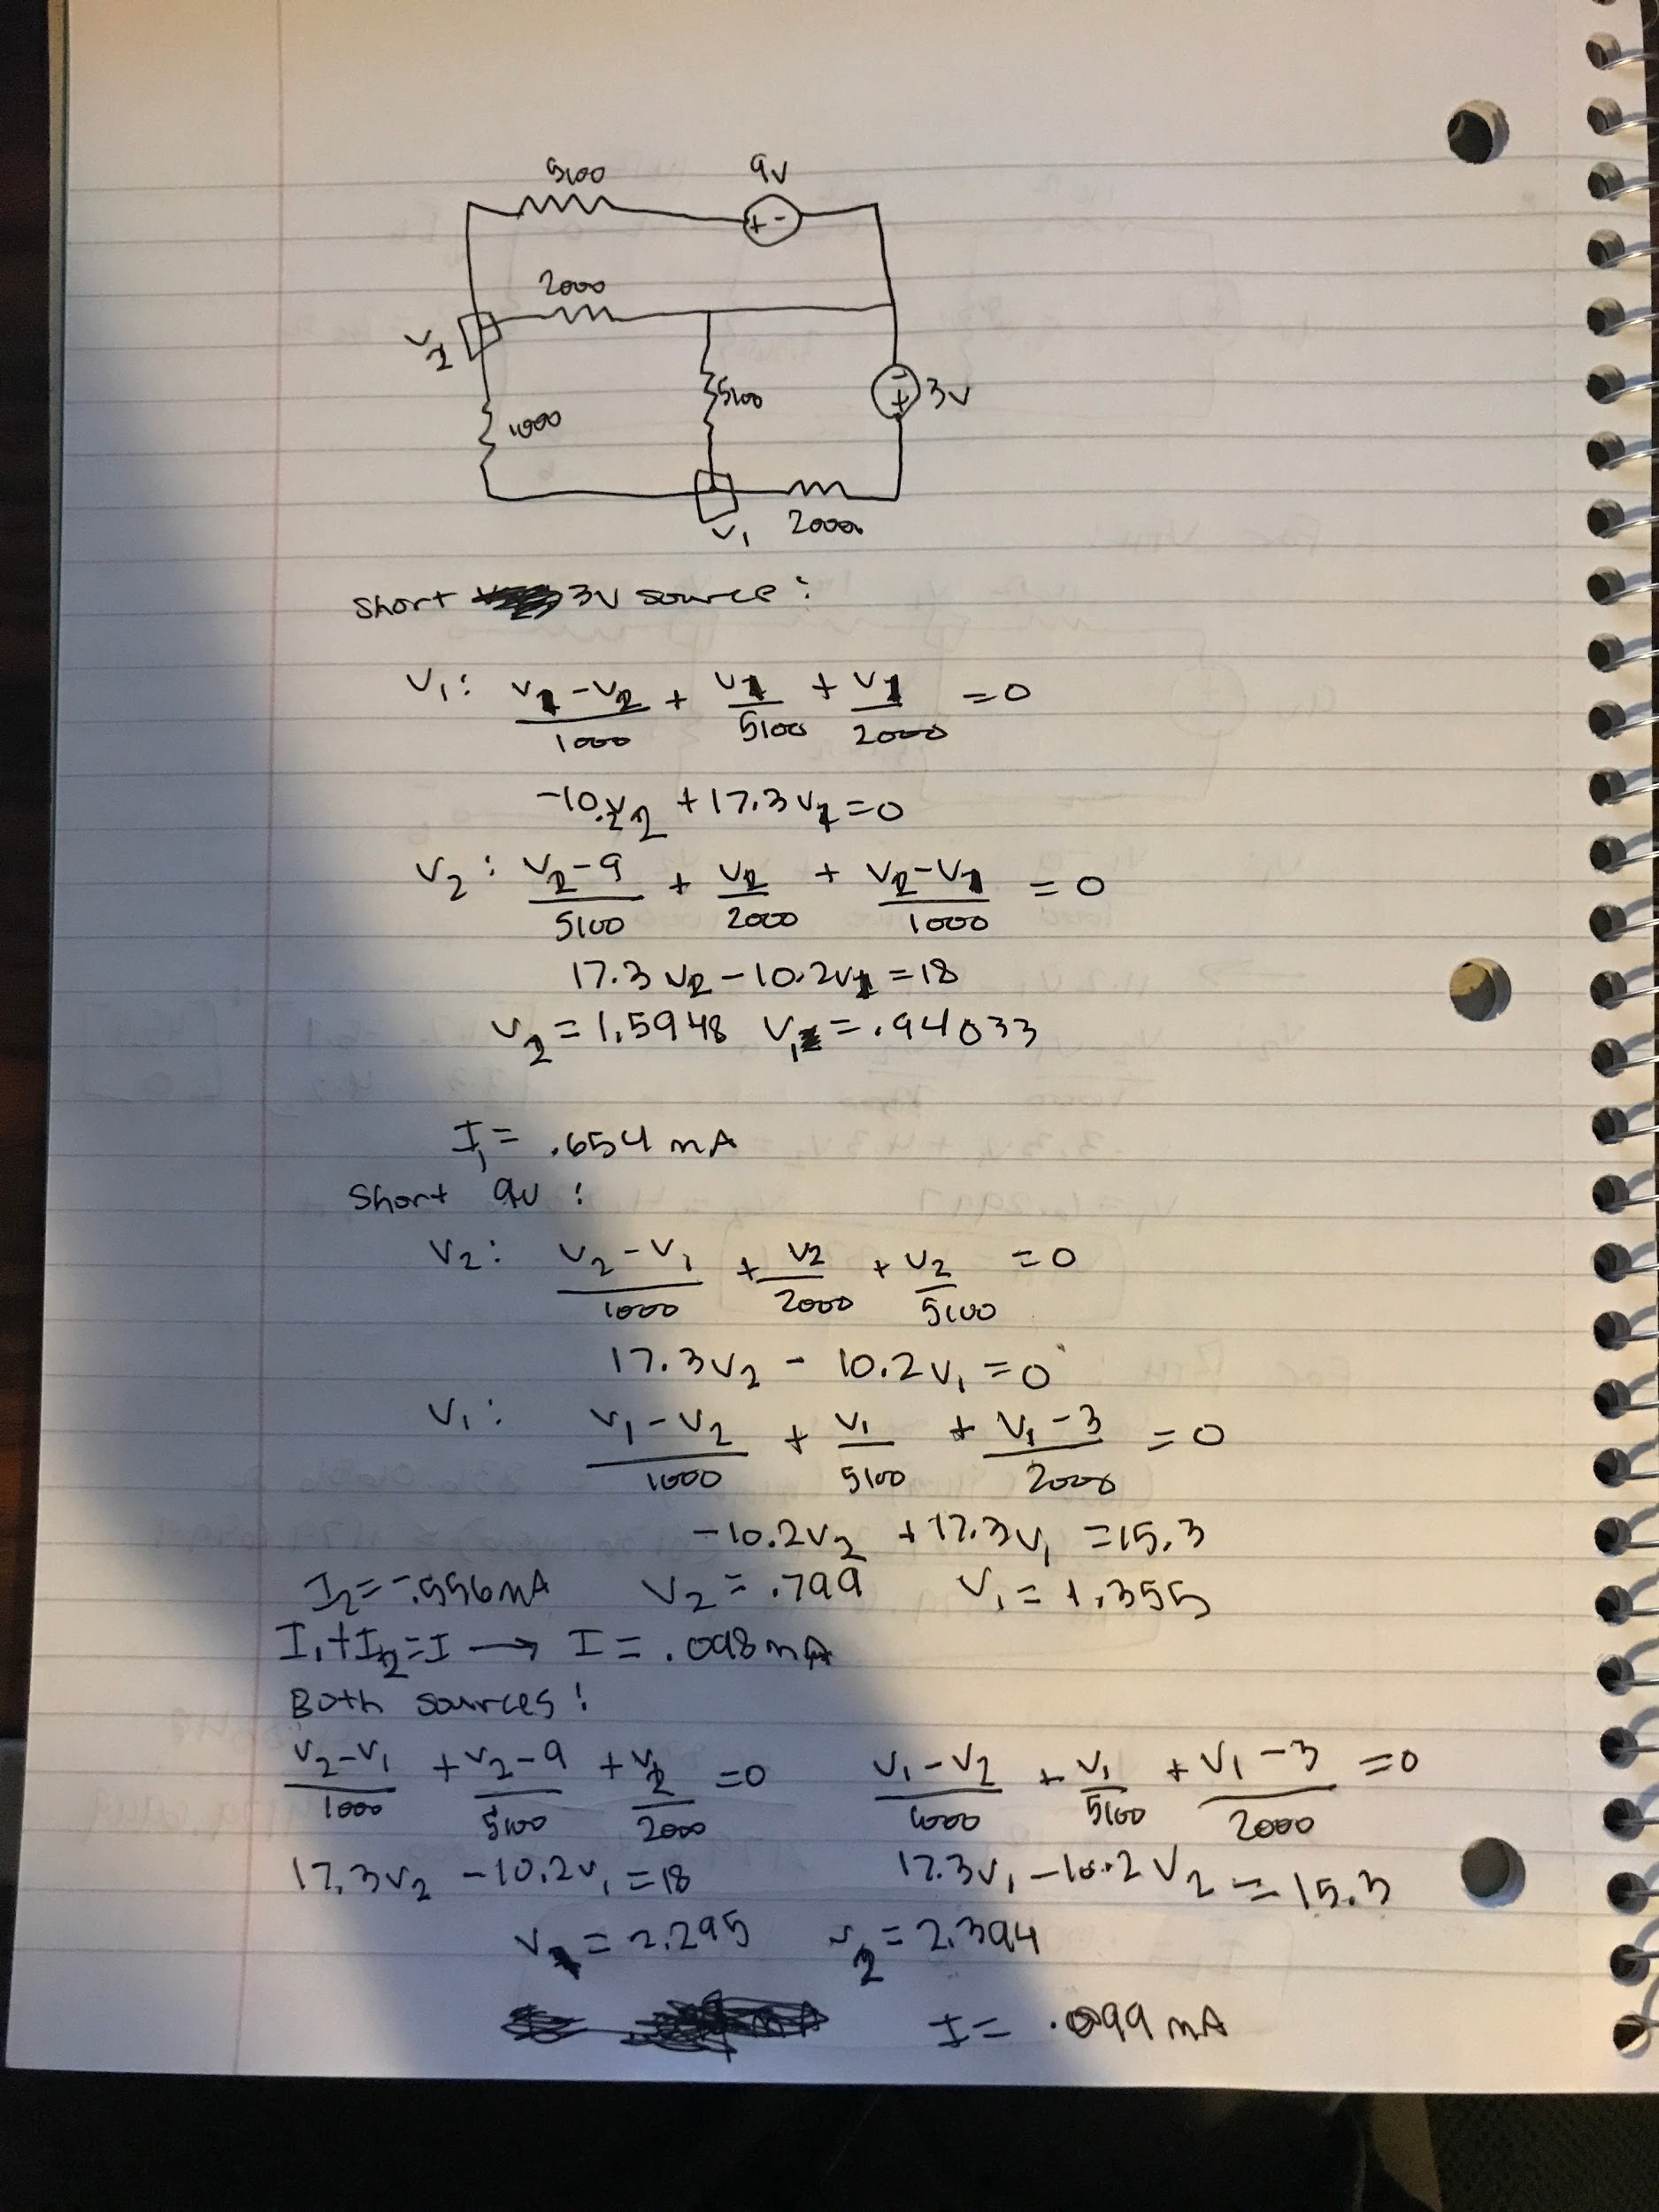 5100 9V
+ -
2000
V2
5100 - + 3V
1000
V1 2000
Short 3V source:
V1: (V1-V2)/1000 + V1/5100 + V1/2000 = 0
-10.2V2 + 17.3V1 = 0
V2: (V2-9)/5100 + V2/2000 + (V2-V1)/1000 = 0
17.3V2 - 10.2V1 = 18
V2 = 1.5948 V1 = .94033
I1 = .654 mA
Short 9V:
V2: (V2-V1)/1000 + V2/2000 + V2/5100 = 0
17.3V2 - 10.2V1 = 0
V1: (V1-V2)/1000 + V1/5100 + (V1-3)/2000 = 0
-10.2V2 + 17.3V1 = 15.3
I2 = -.556mA V2 = .799 V1 = 1.355
I1+I2=I → I = .098mA
Both sources:
(V2-V1)/1000 + (V2-9)/5100 + V2/2000 = 0 (V1-V2)/1000 + V1/5100 + (V1-3)/2000 = 0
17.3V2 - 10.2V1 = 18 17.3V1 - 10.2V2 = 15.3
V1 = 2.295 V2 = 2.394
I = .099 mA